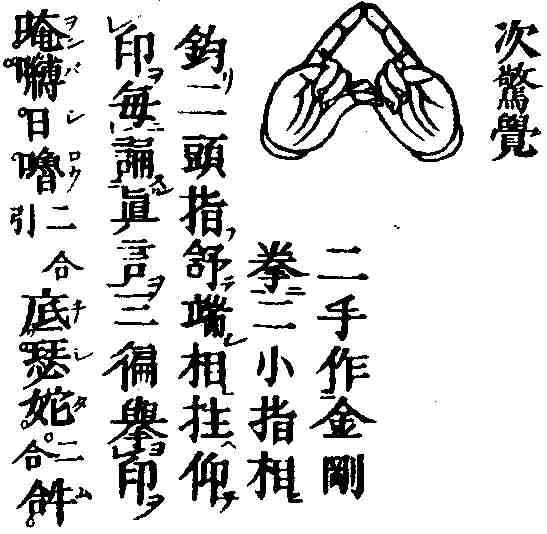 次驚覺
二手作金剛
拳二小指相
鈎二頭指舒端相拄仰
印每誦眞言三徧舉印
唵嚩日嚕二合引底瑟姹二合𤙖